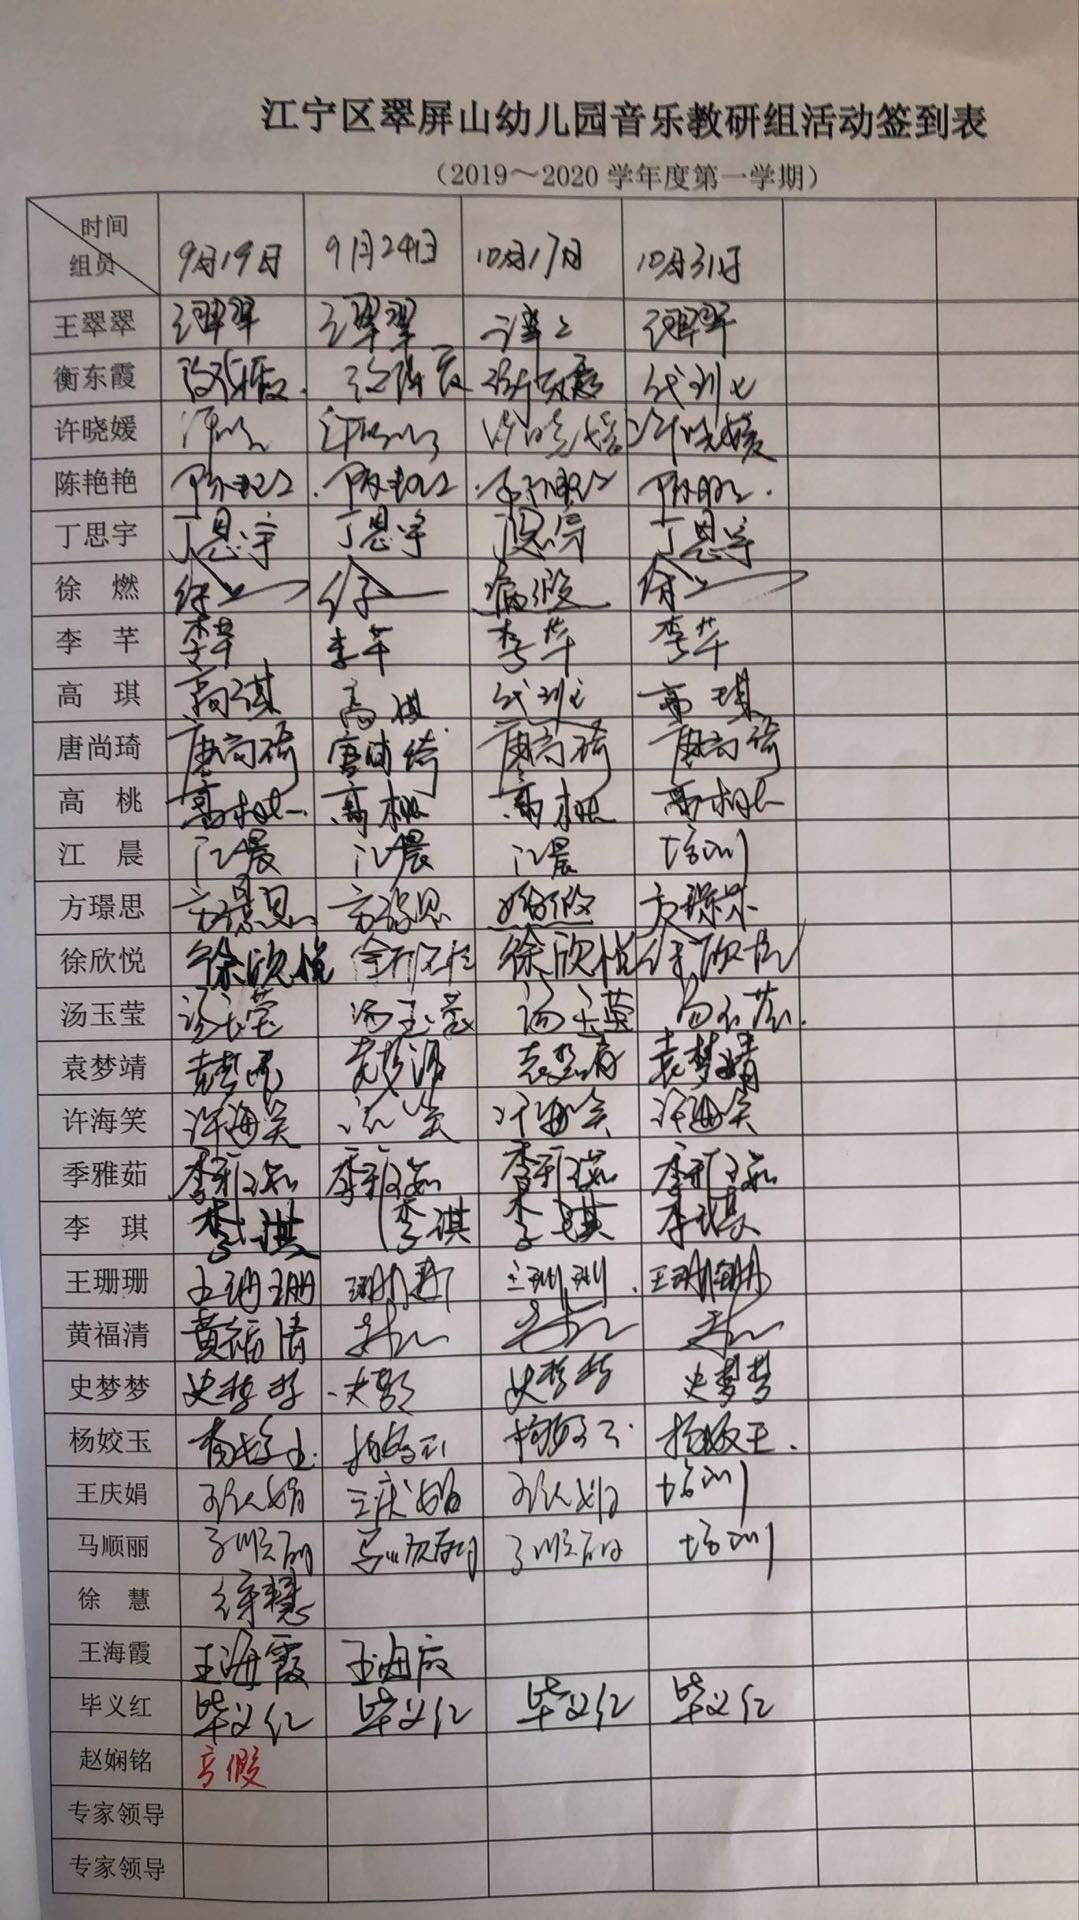 江宁区翠屏山幼儿园音乐教研组活动签到表
（2019～2020 学年度第一学期）
时间
组员 9月19日 9月24日 10月17日 10月31日
王翠翠
衡东霞 代班
许晓媛 许晓媛 许晓媛
陈艳艳
丁思宇 丁思宇 丁思宇 丁思宇
徐 燃 病假
李 芊 李芊 李芊 李芊 李芊
高 琪 高琪 高琪 代班 高琪
唐尚琦 唐尚琦 唐尚琦 唐尚琦 唐尚琦
高 桃 高桃 高桃 高桃 高桃
江 晨 江晨 江晨 江晨 培训
方璟思 方璟思 方璟思 婚假 方璟思
徐欣悦 徐欣悦 徐欣悦 徐欣悦 徐欣悦
汤玉莹 汤玉莹 汤玉莹 汤玉莹 汤玉莹
袁梦靖 袁梦靖 袁梦靖 袁梦靖 袁梦靖
许海笑 许海笑 许海笑 许海笑
季雅茹 季雅茹 季雅茹 季雅茹 季雅茹
李 琪 李琪 李琪 李琪 李琪
王珊珊 王珊珊 王珊珊 王珊珊
黄福清 黄福清
史梦梦 史梦梦 史梦梦 史梦梦
杨姣玉 杨姣玉 杨姣玉 杨姣玉 杨姣玉
王庆娟 王庆娟 王庆娟 王庆娟 培训
马顺丽 马顺丽 马顺丽 马顺丽 培训
徐 慧 徐慧
王海霞 王海霞 王海霞
毕义红 毕义红 毕义红 毕义红 毕义红
赵娴铭 产假
专家领导
专家领导